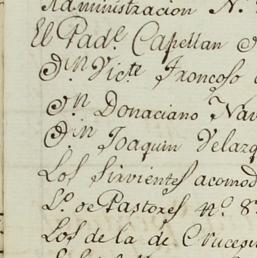 Administracion N.
El Pad.e Capellan
D.n Vic.te Troncoso
D.n Donaciano Nav
D.n Joaquin Velazq
Los sirvientes acomod
L.s de Pastores n.o 8
Los de la de Crucesi